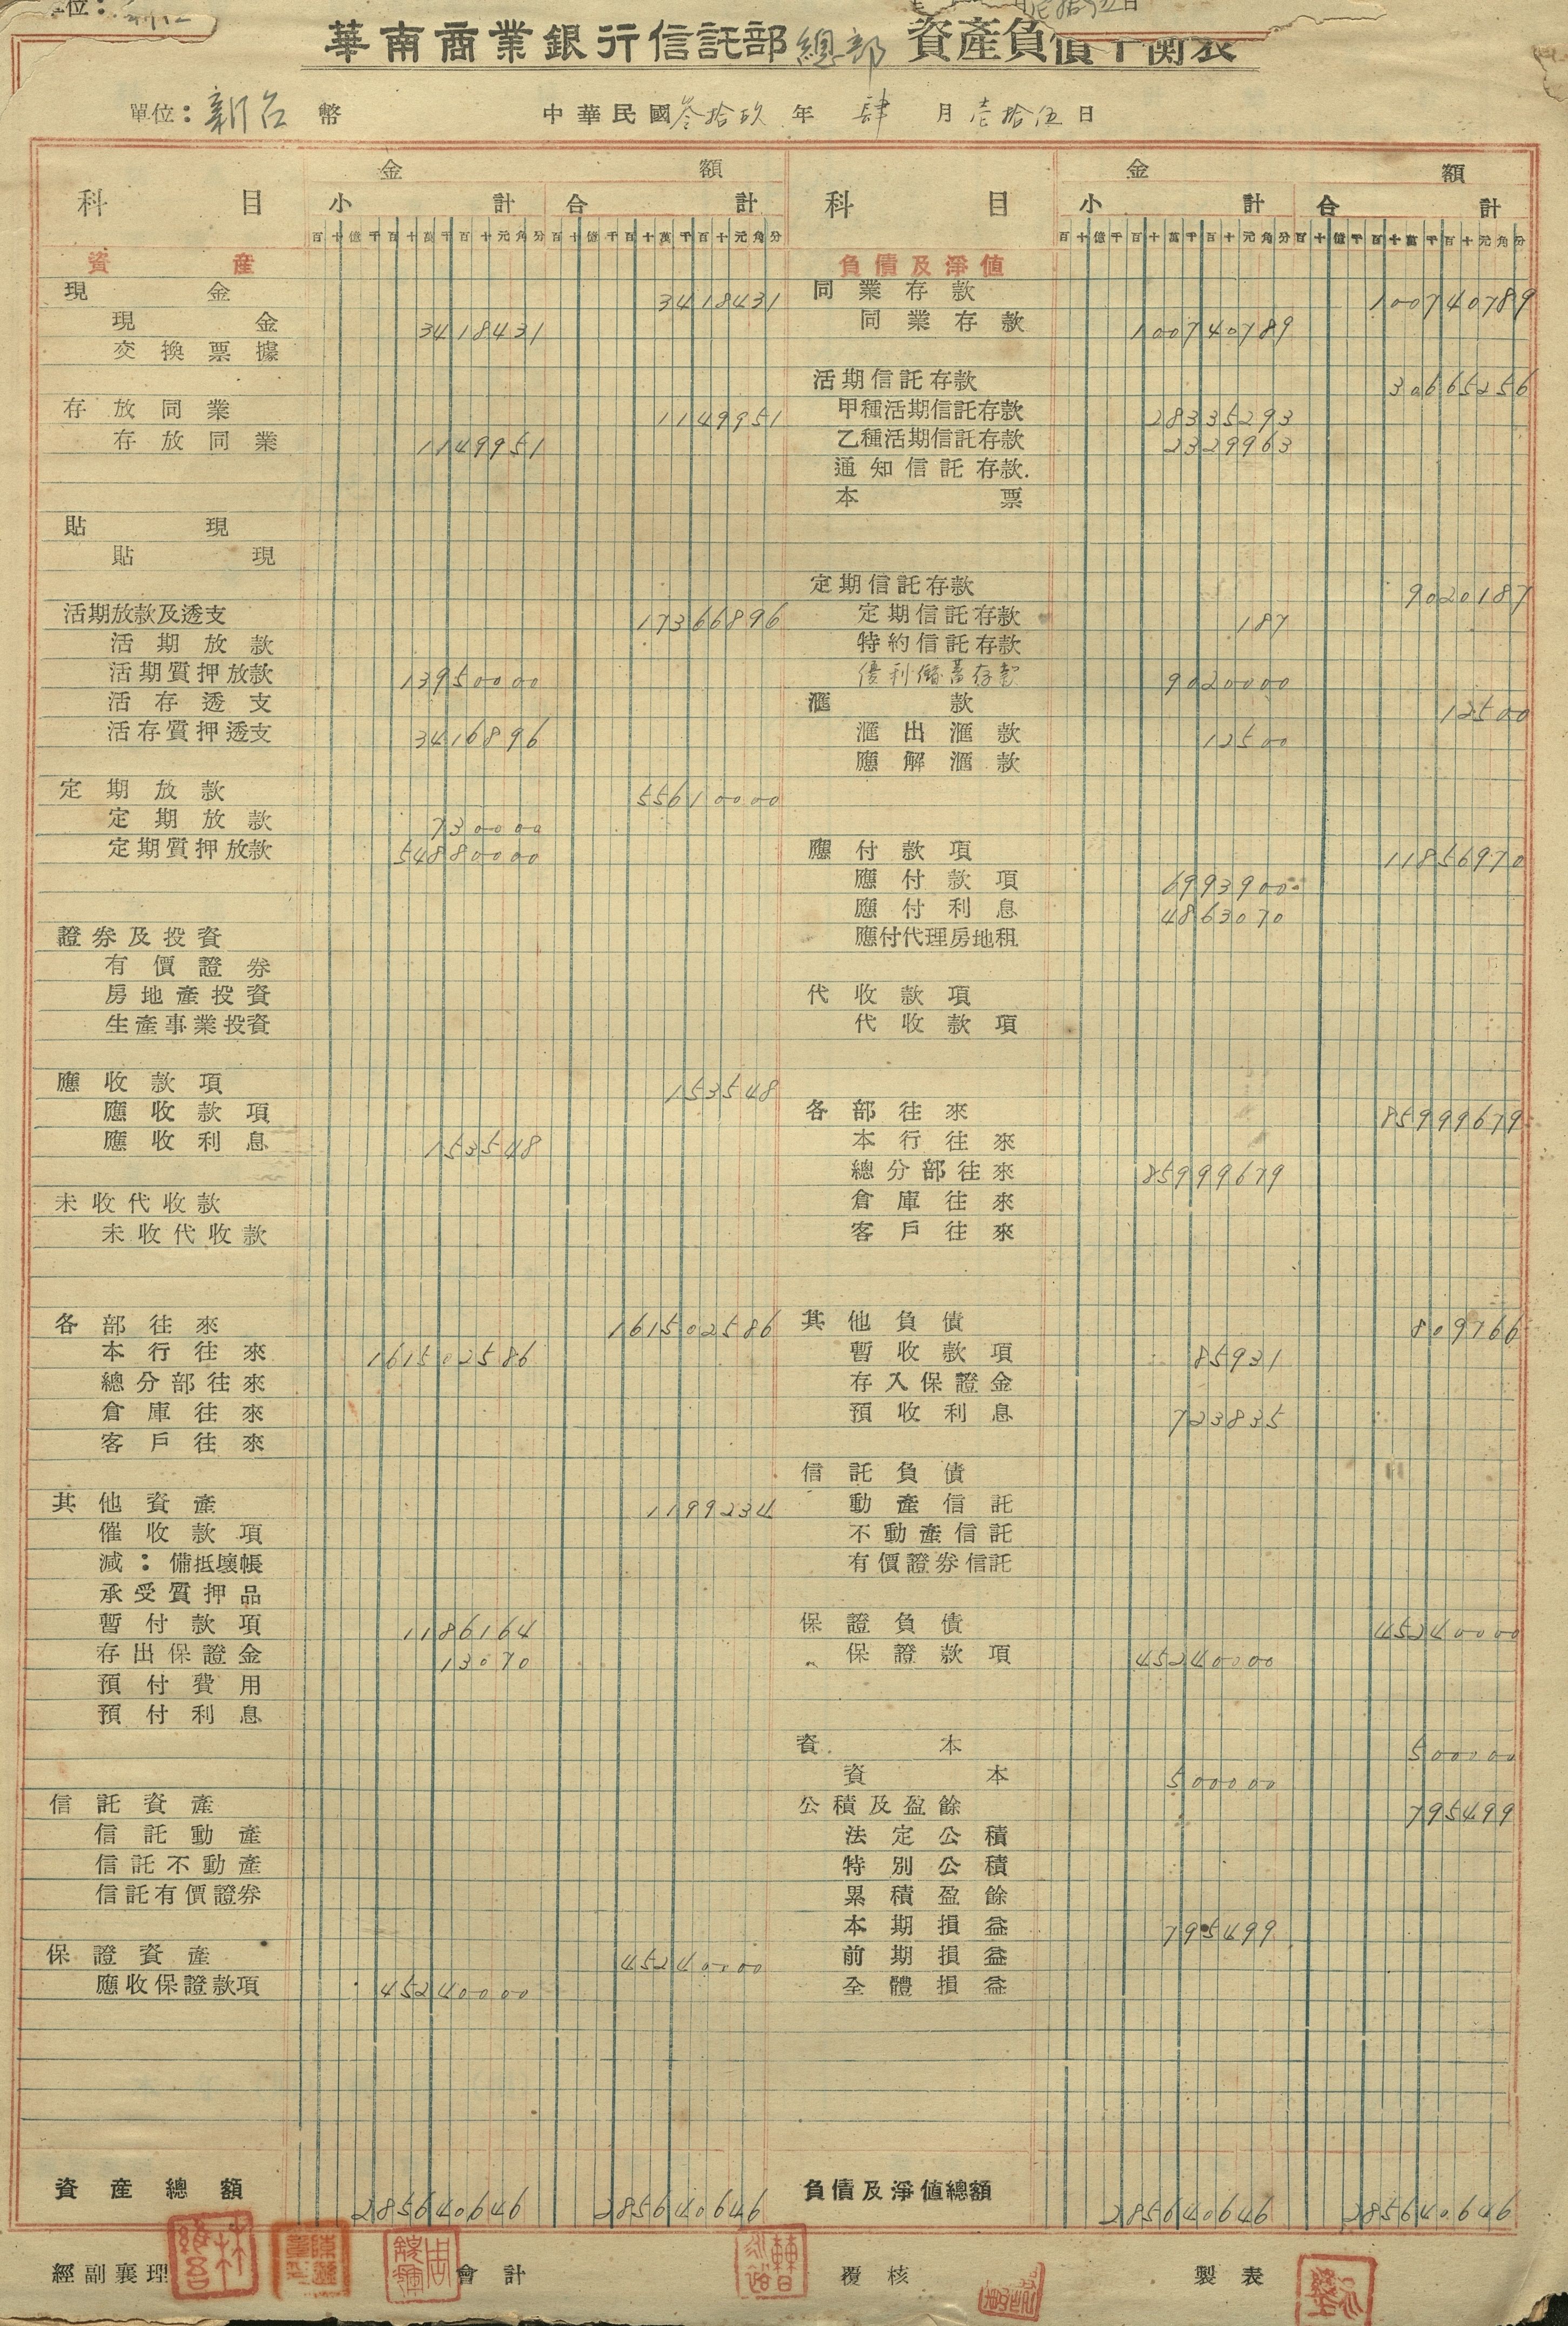 華南商業銀行信託部總部 資產負債平衡表
單位：新台幣 中華民國叁拾玖年肆月壱拾伍日
科目 金額
小計 合計
百十億千百十萬千百十元角分 百十億千百十萬千百十元角分
資產
現金 3418431
現金 3418431
交換票據
存放同業 1149951
存放同業 1149951
貼現
貼現
活期放款及透支 17366896
活期放款
活期質押放款 13950000
活存透支
活存質押透支 3416896
定期放款 55610000
定期放款 730000
定期質押放款 54880000
證券及投資
有價證券
房地產投資
生產事業投資
應收款項 153548
應收款項
應收利息 153548
未收代收款
未收代收款
各部往來 161502586
本行往來 161502586
總分部往來
倉庫往來
客戶往來
其他資產 1199234
催收款項
減：備抵壞帳
承受質押品
暫付款項 1186164
存出保證金 13070
預付費用
預付利息
信託資產
信託動產
信託不動產
信託有價證券
保證資產 45240000
應收保證款項 45240000
資產總額 285640646 285640646
科目 金額
小計 合計
百十億千百十萬千百十元角分 百十億千百十萬千百十元角分
負債及淨值
同業存款 100740789
同業存款 100740789
活期信託存款 30665256
甲種活期信託存款 28335293
乙種活期信託存款 2329963
通知信託存款
本票
定期信託存款 9020187
定期信託存款 187
特約信託存款
優利儲蓄存款 9020000
滙款 12500
滙出滙款 12500
應解滙款
應付款項 11856970
應付款項 6993900
應付利息 4863070
應付代理房地租
代收款項
代收款項
各部往來 85999679
本行往來
總分部往來 85999679
倉庫往來
客戶往來
其他負債 809766
暫收款項 85931
存入保證金
預收利息 723835
信託負債
動產信託
不動產信託
有價證券信託
保證負債 45240000
保證款項 45240000
資本 500000
資本 500000
公積及盈餘 795499
法定公積
特別公積
累積盈餘
本期損益 795499
前期損益
全體損益
負債及淨值總額 285640646 285640646
經副襄理 會計 覆核 製表